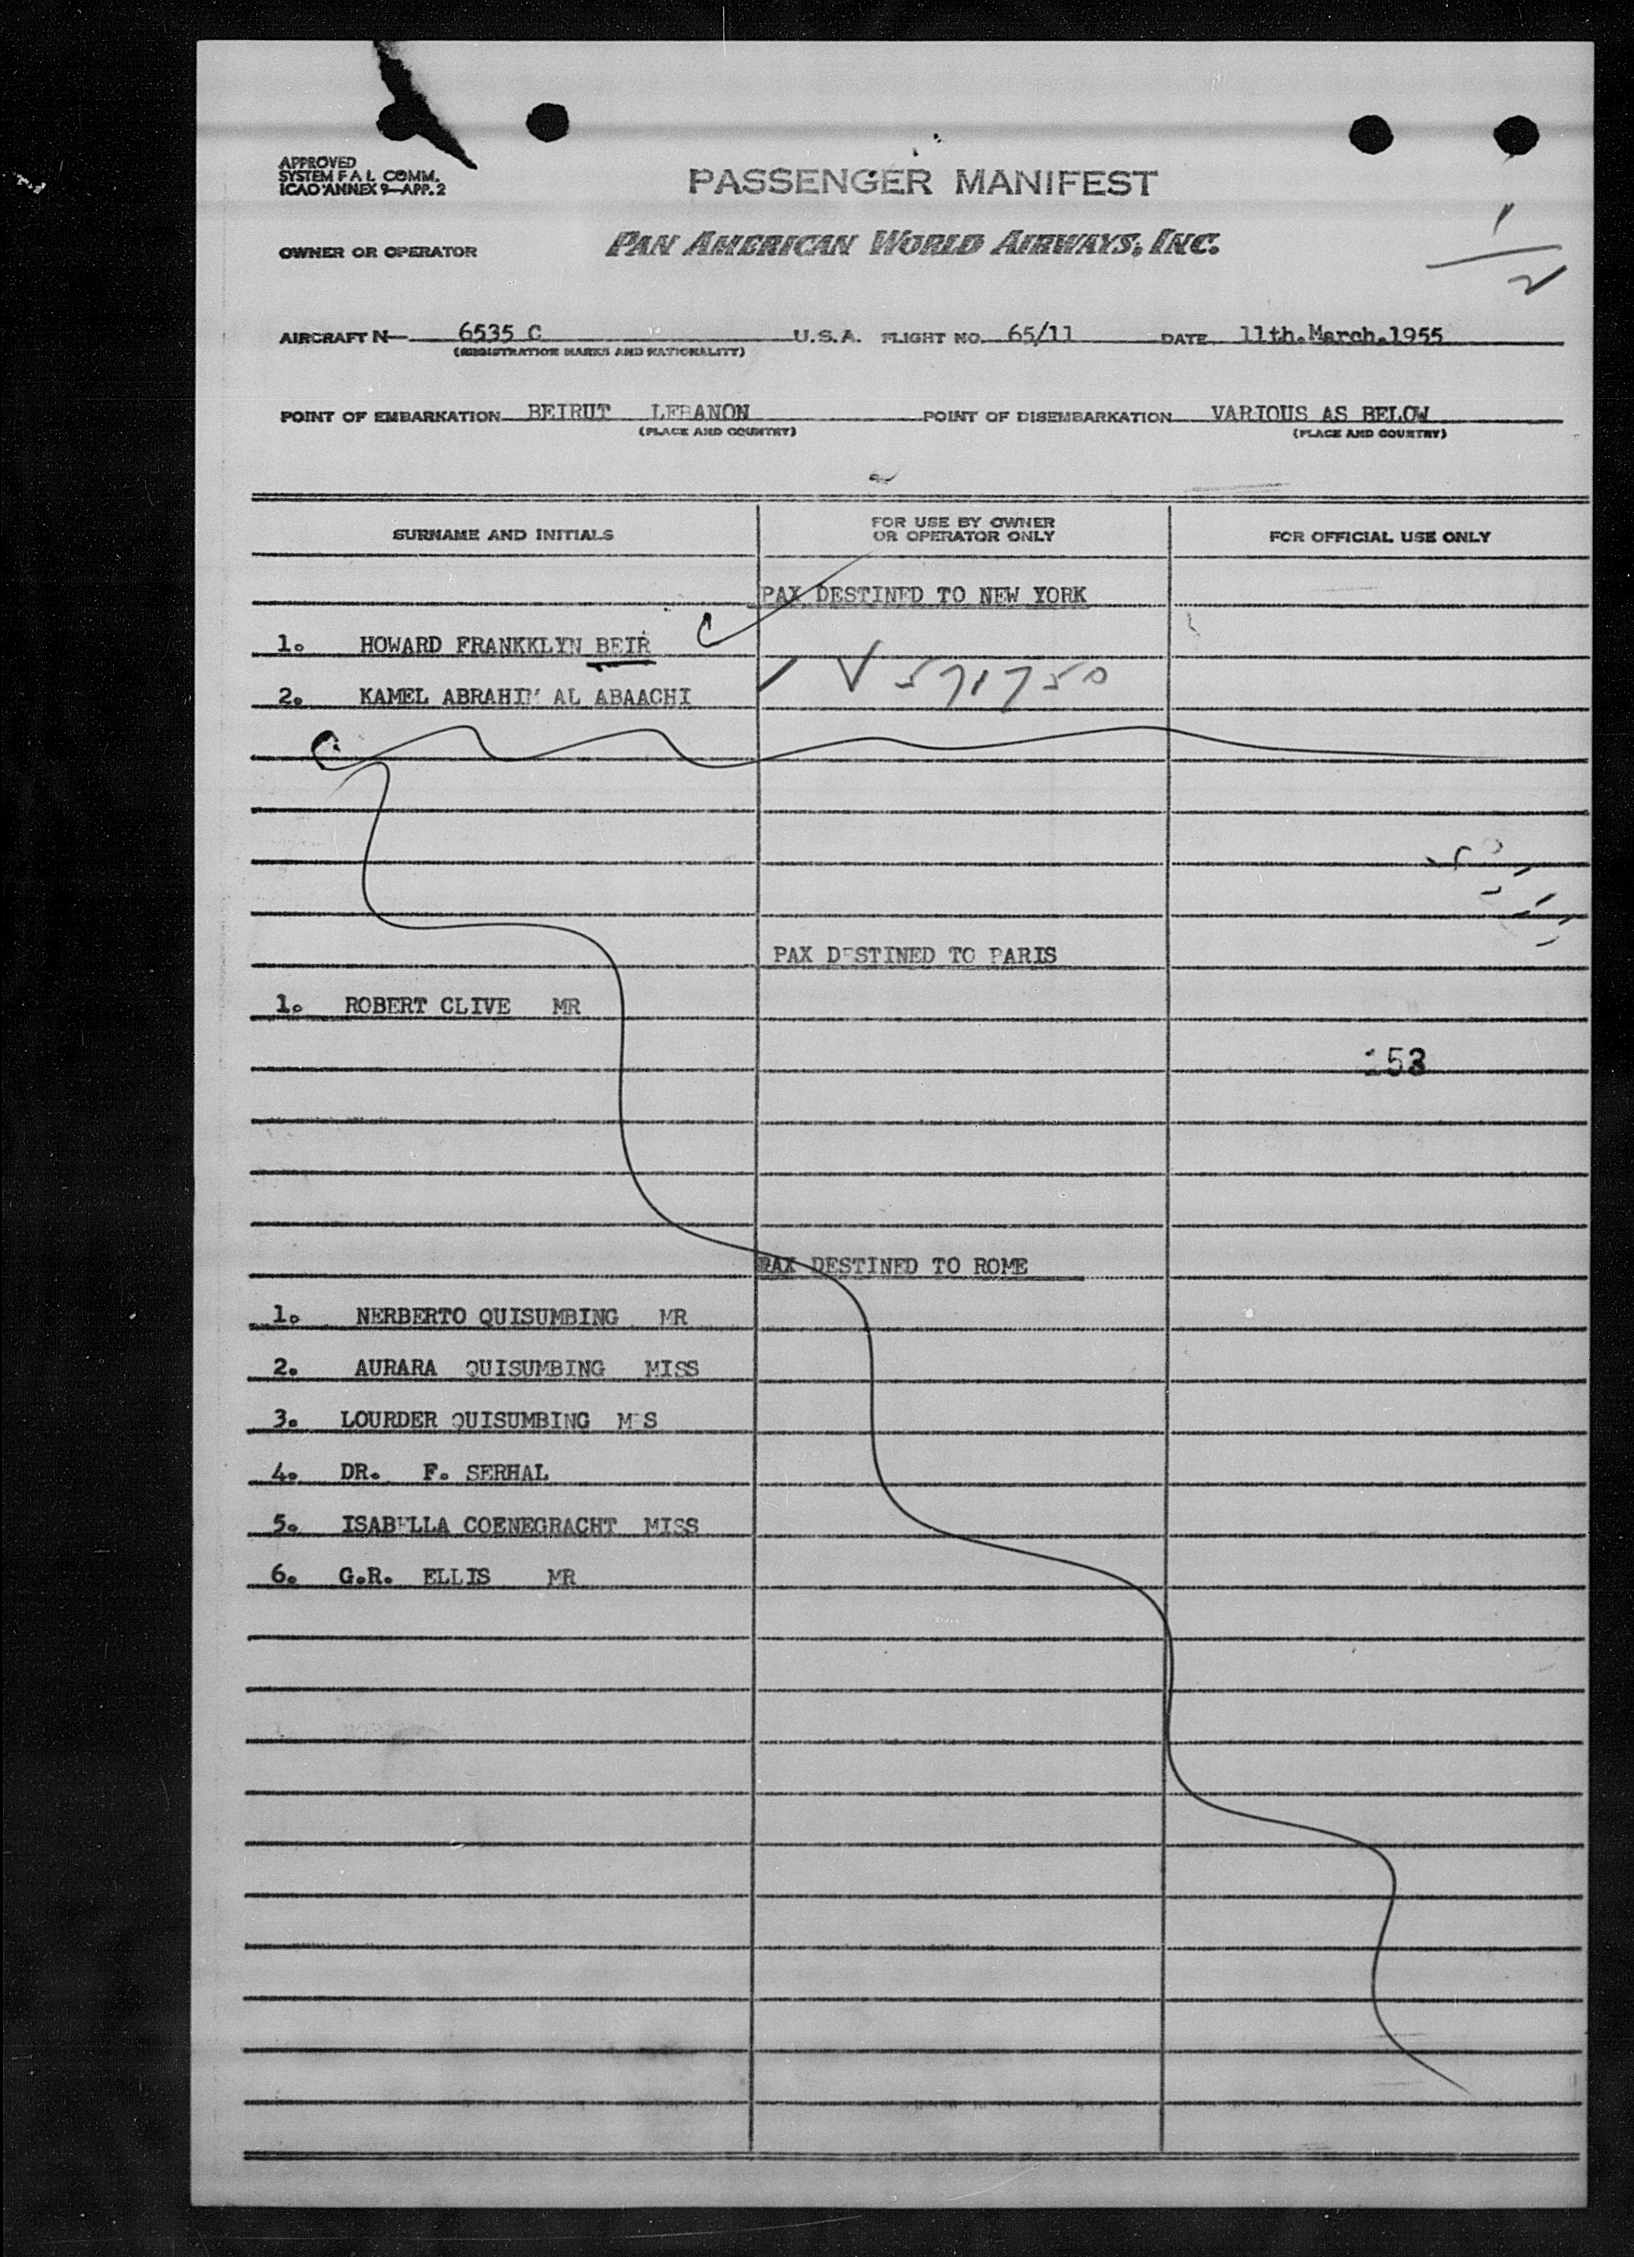 APPROVED
SYSTEM F A L COMM.
ICAO ANNEX 9—APP. 2
PASSENGER MANIFEST
1/2
OWNER OR OPERATOR PAN AMERICAN WORLD AIRWAYS, INC.
AIRCRAFT N— 6535 C U.S.A. FLIGHT NO. 65/11 DATE 11th.March.1955
(REGISTRATION MARKS AND NATIONALITY)
POINT OF EMBARKATION BEIRUT LEBANON POINT OF DISEMBARKATION VARIOUS AS BELOW
(PLACE AND COUNTRY) (PLACE AND COUNTRY)
SURNAME AND INITIALS FOR USE BY OWNER OR OPERATOR ONLY FOR OFFICIAL USE ONLY
PAX DESTINED TO NEW YORK
1. HOWARD FRANKKLYN BEIR
2. KAMEL ABRAHIM AL ABAACHI V 571750
PAX DESTINED TO PARIS
1. ROBERT CLIVE MR
153
PAX DESTINED TO ROME
1. NERBERTO QUISUMBING MR
2. AURARA QUISUMBING MISS
3. LOURDER QUISUMBING M S
4. DR. F. SERHAL
5. ISABELLA COENEGRACHT MISS
6. G.R. ELLIS MR